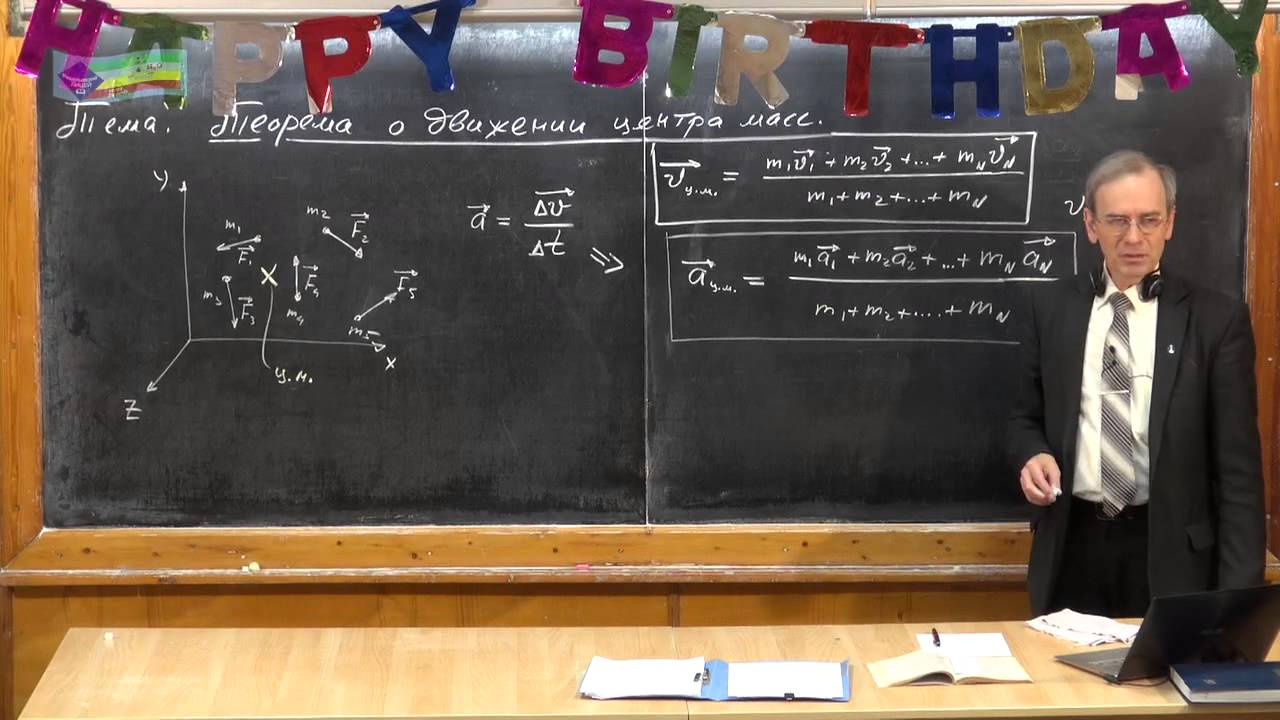 HAPPY BIRTHDAY
Тема. Теорема о движении центра масс.
y
m₁ F⃗₁
m₂ F⃗₂
m₃ F⃗₃
m₄ F⃗₄
m₅ F⃗₅
x
z
ц.м.
a⃗ = Δv⃗ / Δt ⇒
v⃗ц.м. = (m₁v⃗₁ + m₂v⃗₂ + ... + m_N v⃗_N) / (m₁ + m₂ + ... + m_N)
a⃗ц.м. = (m₁a⃗₁ + m₂a⃗₂ + ... + m_N a⃗_N) / (m₁ + m₂ + .... + m_N)
v